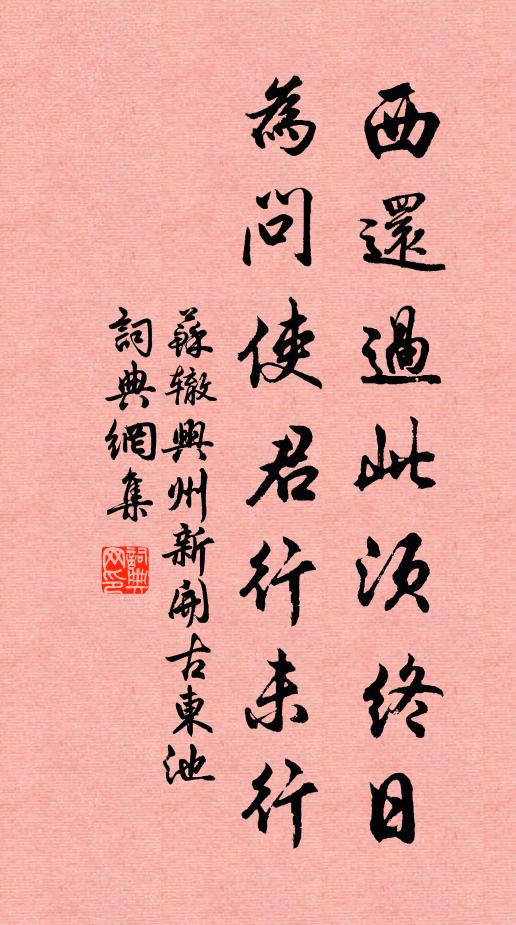 西還過此須終日
為問使君行未行
蘇轍興州新開古東池
詞典網集
詞典網印